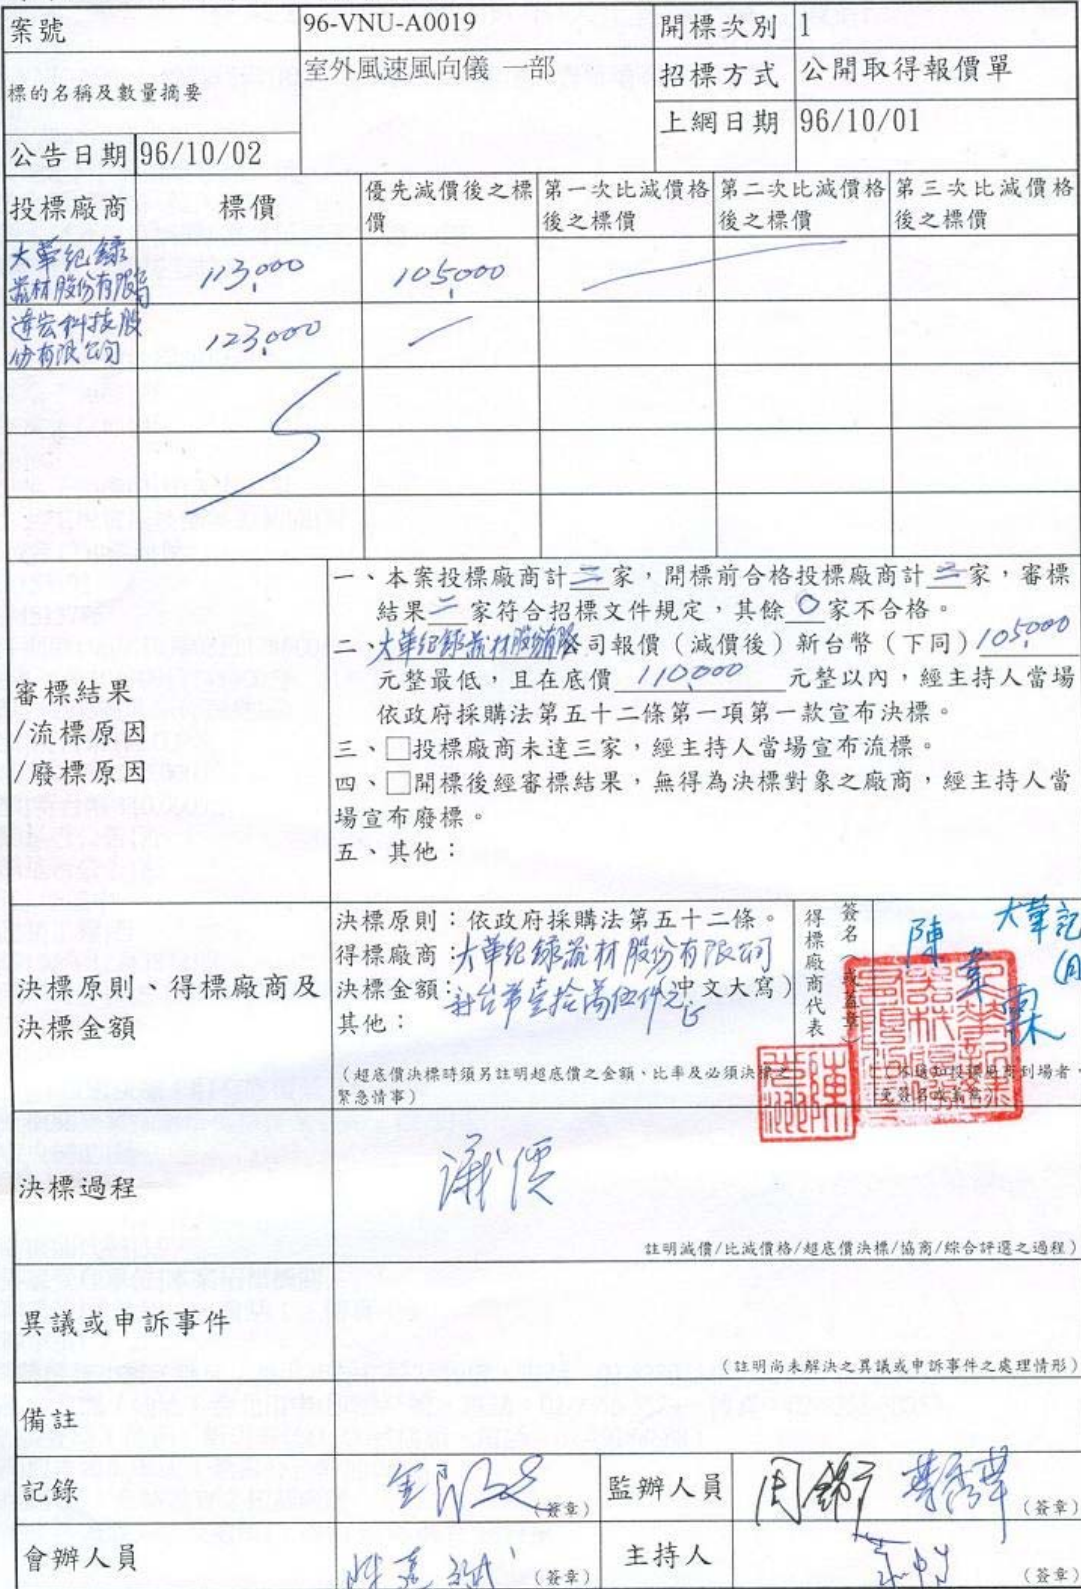 案號 96-VNU-A0019 開標次別 1
標的名稱及數量摘要 室外風速風向儀 一部 招標方式 公開取得報價單
上網日期 96/10/01
公告日期 96/10/02
投標廠商 標價 優先減價後之標價 第一次比減價格後之標價 第二次比減價格後之標價 第三次比減價格後之標價
大華紀錄
器材股份有限公司 113,000 105,000
達宏科技股
份有限公司 123,000
審標結果
/流標原因
/廢標原因
一、本案投標廠商計二家，開標前合格投標廠商計二家，審標
結果二家符合招標文件規定，其餘0家不合格。
二、大華紀錄器材股份有限公司報價（減價後）新台幣（下同）105,000
元整最低，且在底價 110,000 元整以內，經主持人當場
依政府採購法第五十二條第一項第一款宣布決標。
三、□投標廠商未達三家，經主持人當場宣布流標。
四、□開標後經審標結果，無得為決標對象之廠商，經主持人當
場宣布廢標。
五、其他：
決標原則、得標廠商及
決標金額
決標原則：依政府採購法第五十二條。
得標廠商：大華紀錄器材股份有限公司
決標金額：新台幣壹拾萬伍仟元正（中文大寫）
其他：
（超底價決標時須另註明超底價之金額、比率及必須決標之
緊急情事）
得標廠商代表
簽名（或蓋章）
大華記
陳
決標過程
議價
註明減價/比減價格/超底價決標/協商/綜合評選之過程）
異議或申訴事件
（註明尚未解決之異議或申訴事件之處理情形）
備註
記錄 （簽章） 監辦人員 （簽章）
會辦人員 （簽章） 主持人 （簽章）